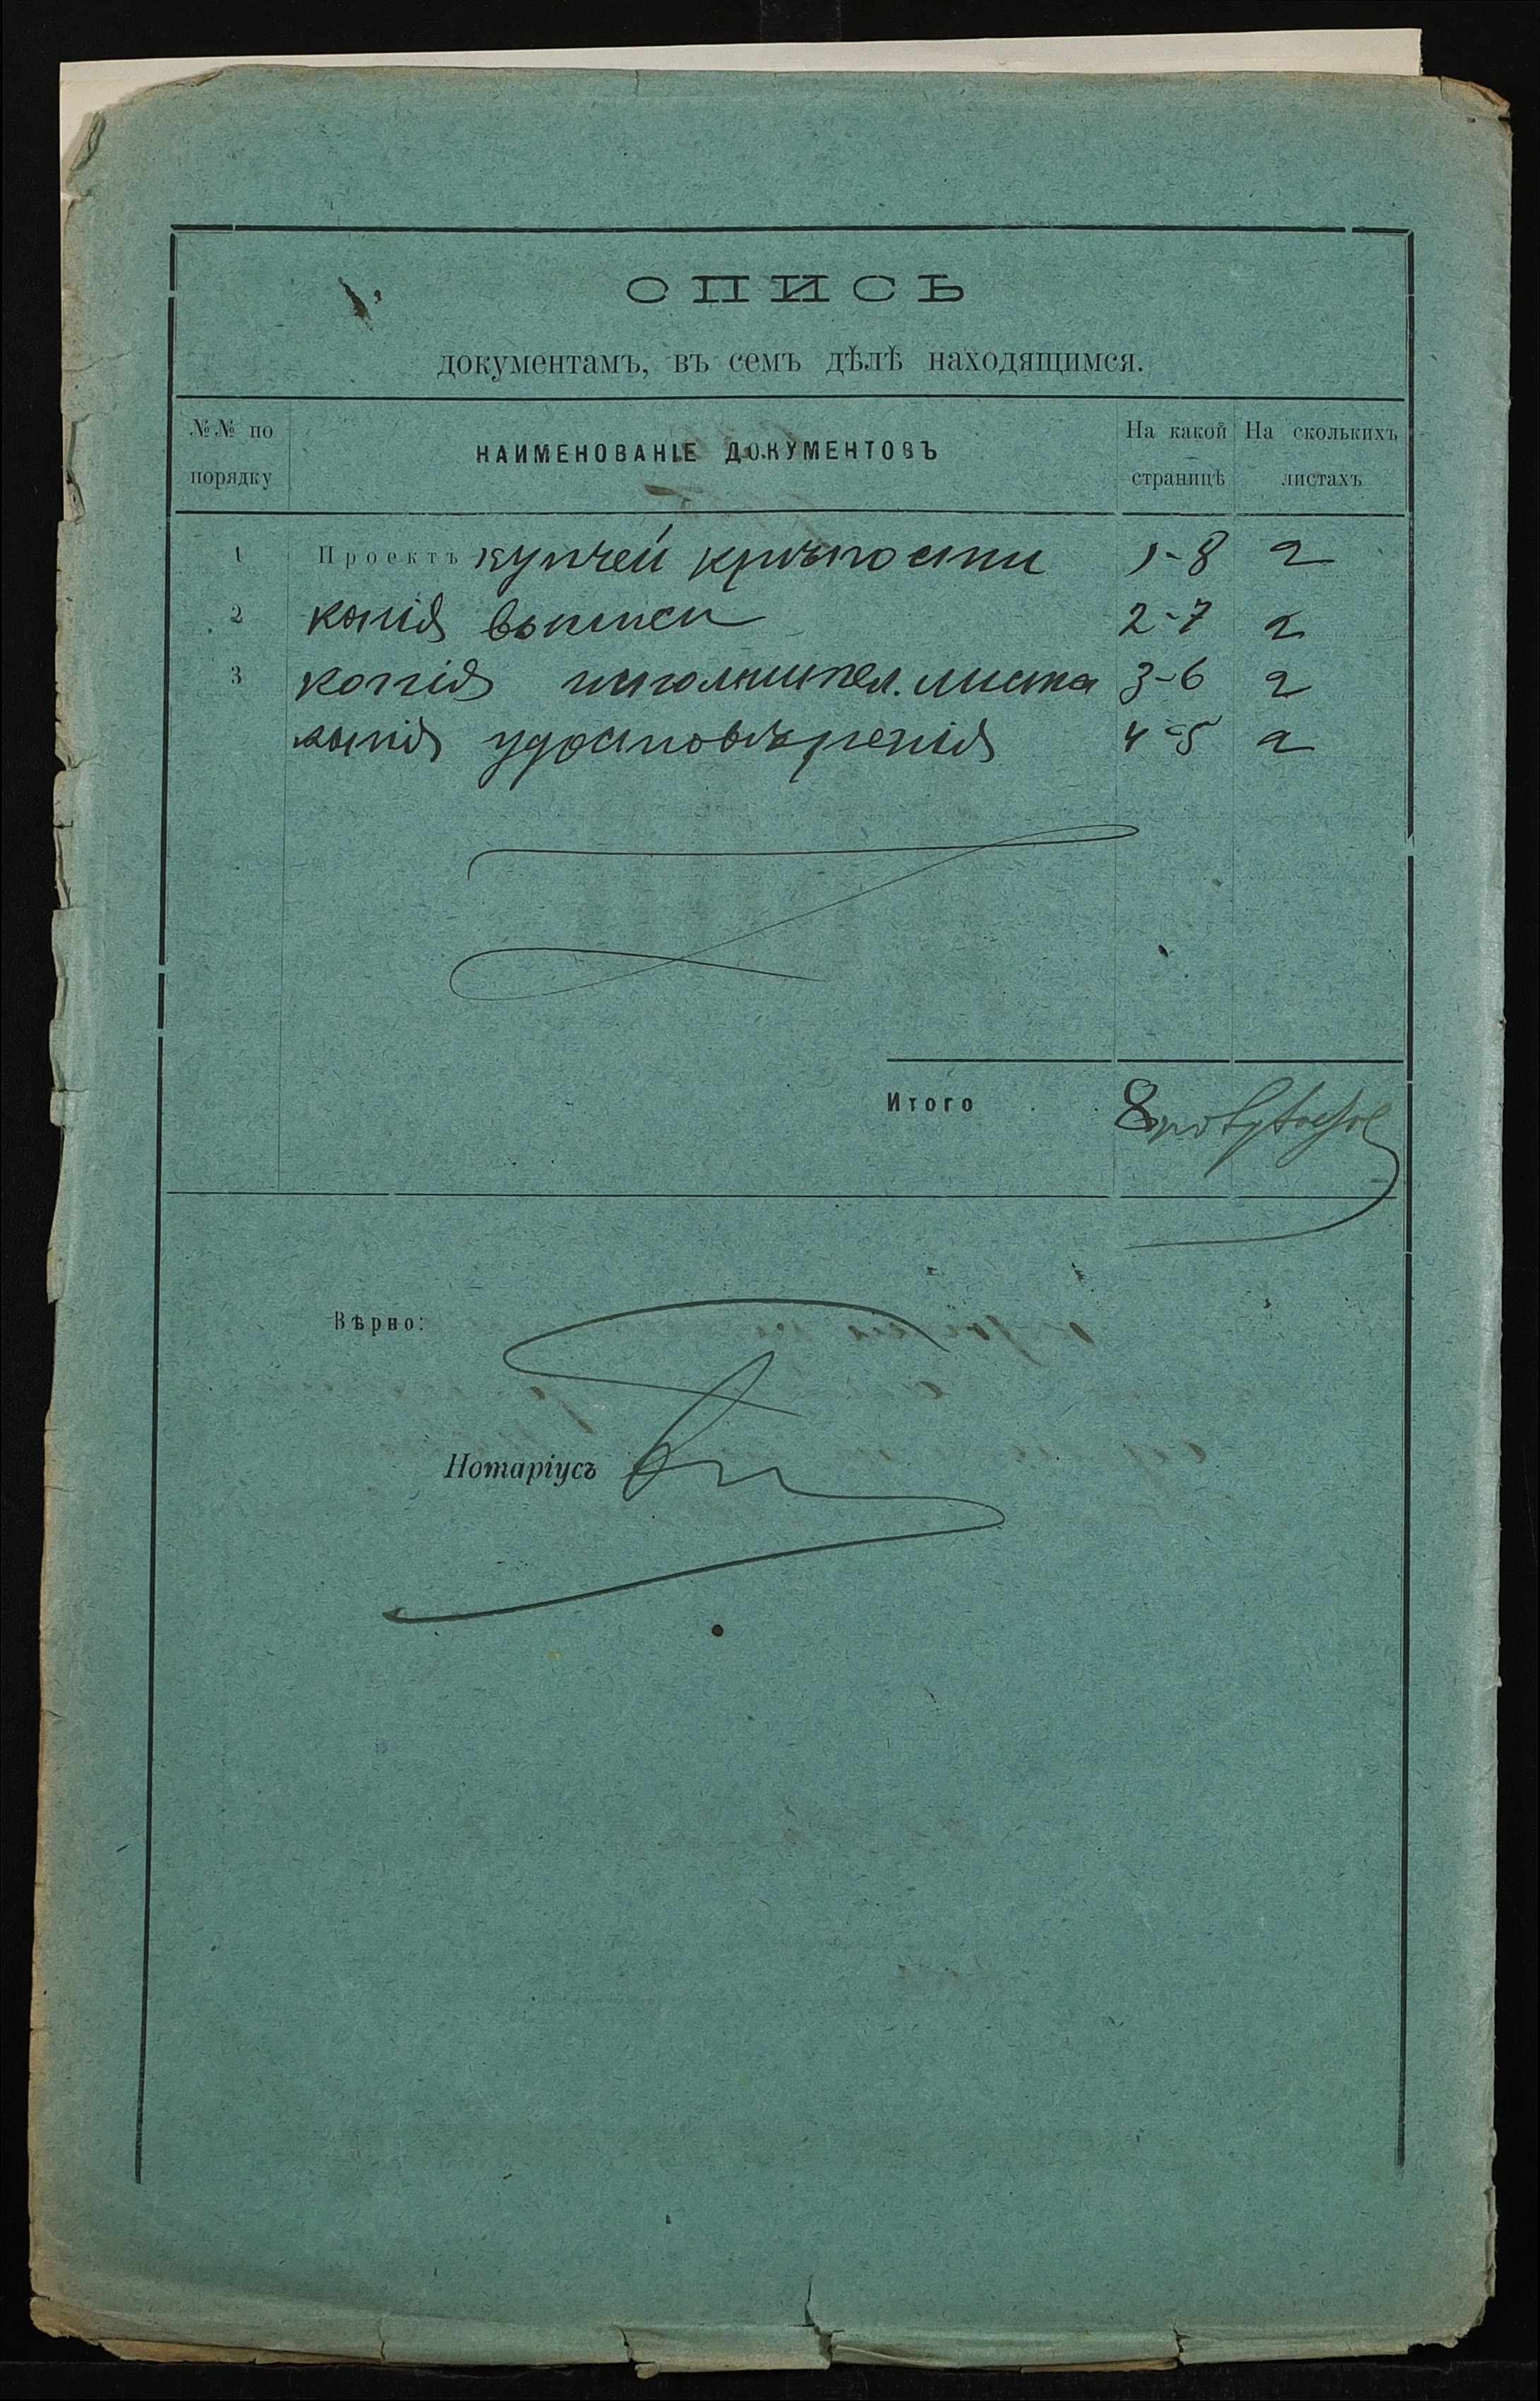 ОПИСЬ
документамъ, въ семъ дѣлѣ находящимся.
№№ по порядку
НАИМЕНОВАНІЕ ДОКУМЕНТОВЪ
На какой страницѣ
На сколькихъ листахъ
1 Проектъ купчей крѣпости 1-8 2
2 копія выписи 2-7 2
3 копія исполнител. листа 3-6 2
копія удостовѣренія 4-5 2
Итого 8
Вѣрно:
Нотаріусъ